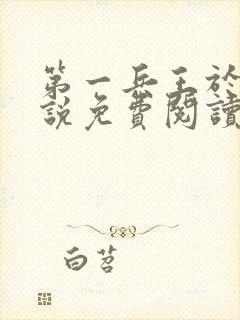 第一兵王於
說免費閱讀
白苕